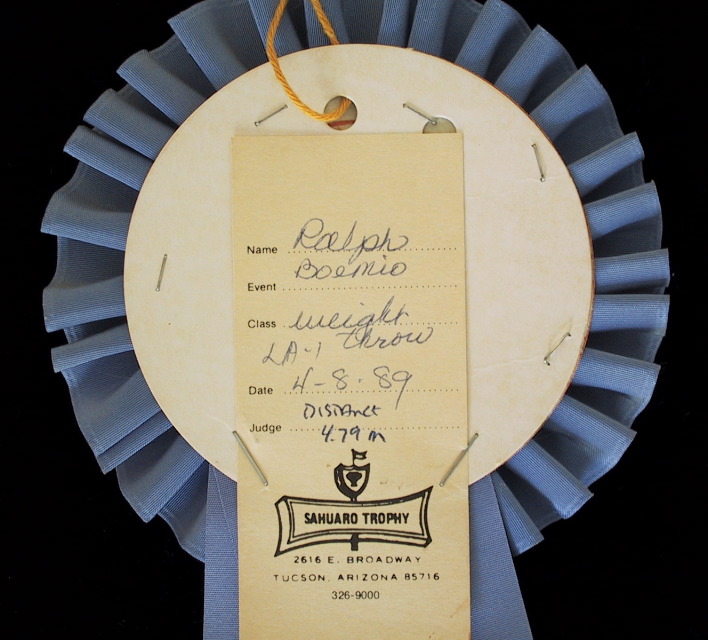 Name Ralph
Boemio
Event
Class weight
LA-1 throw
Date 4-8-89
DISTANCE
Judge 4.79 m
SAHUARO TROPHY
2616 E. BROADWAY
TUCSON, ARIZONA 85716
326-9000